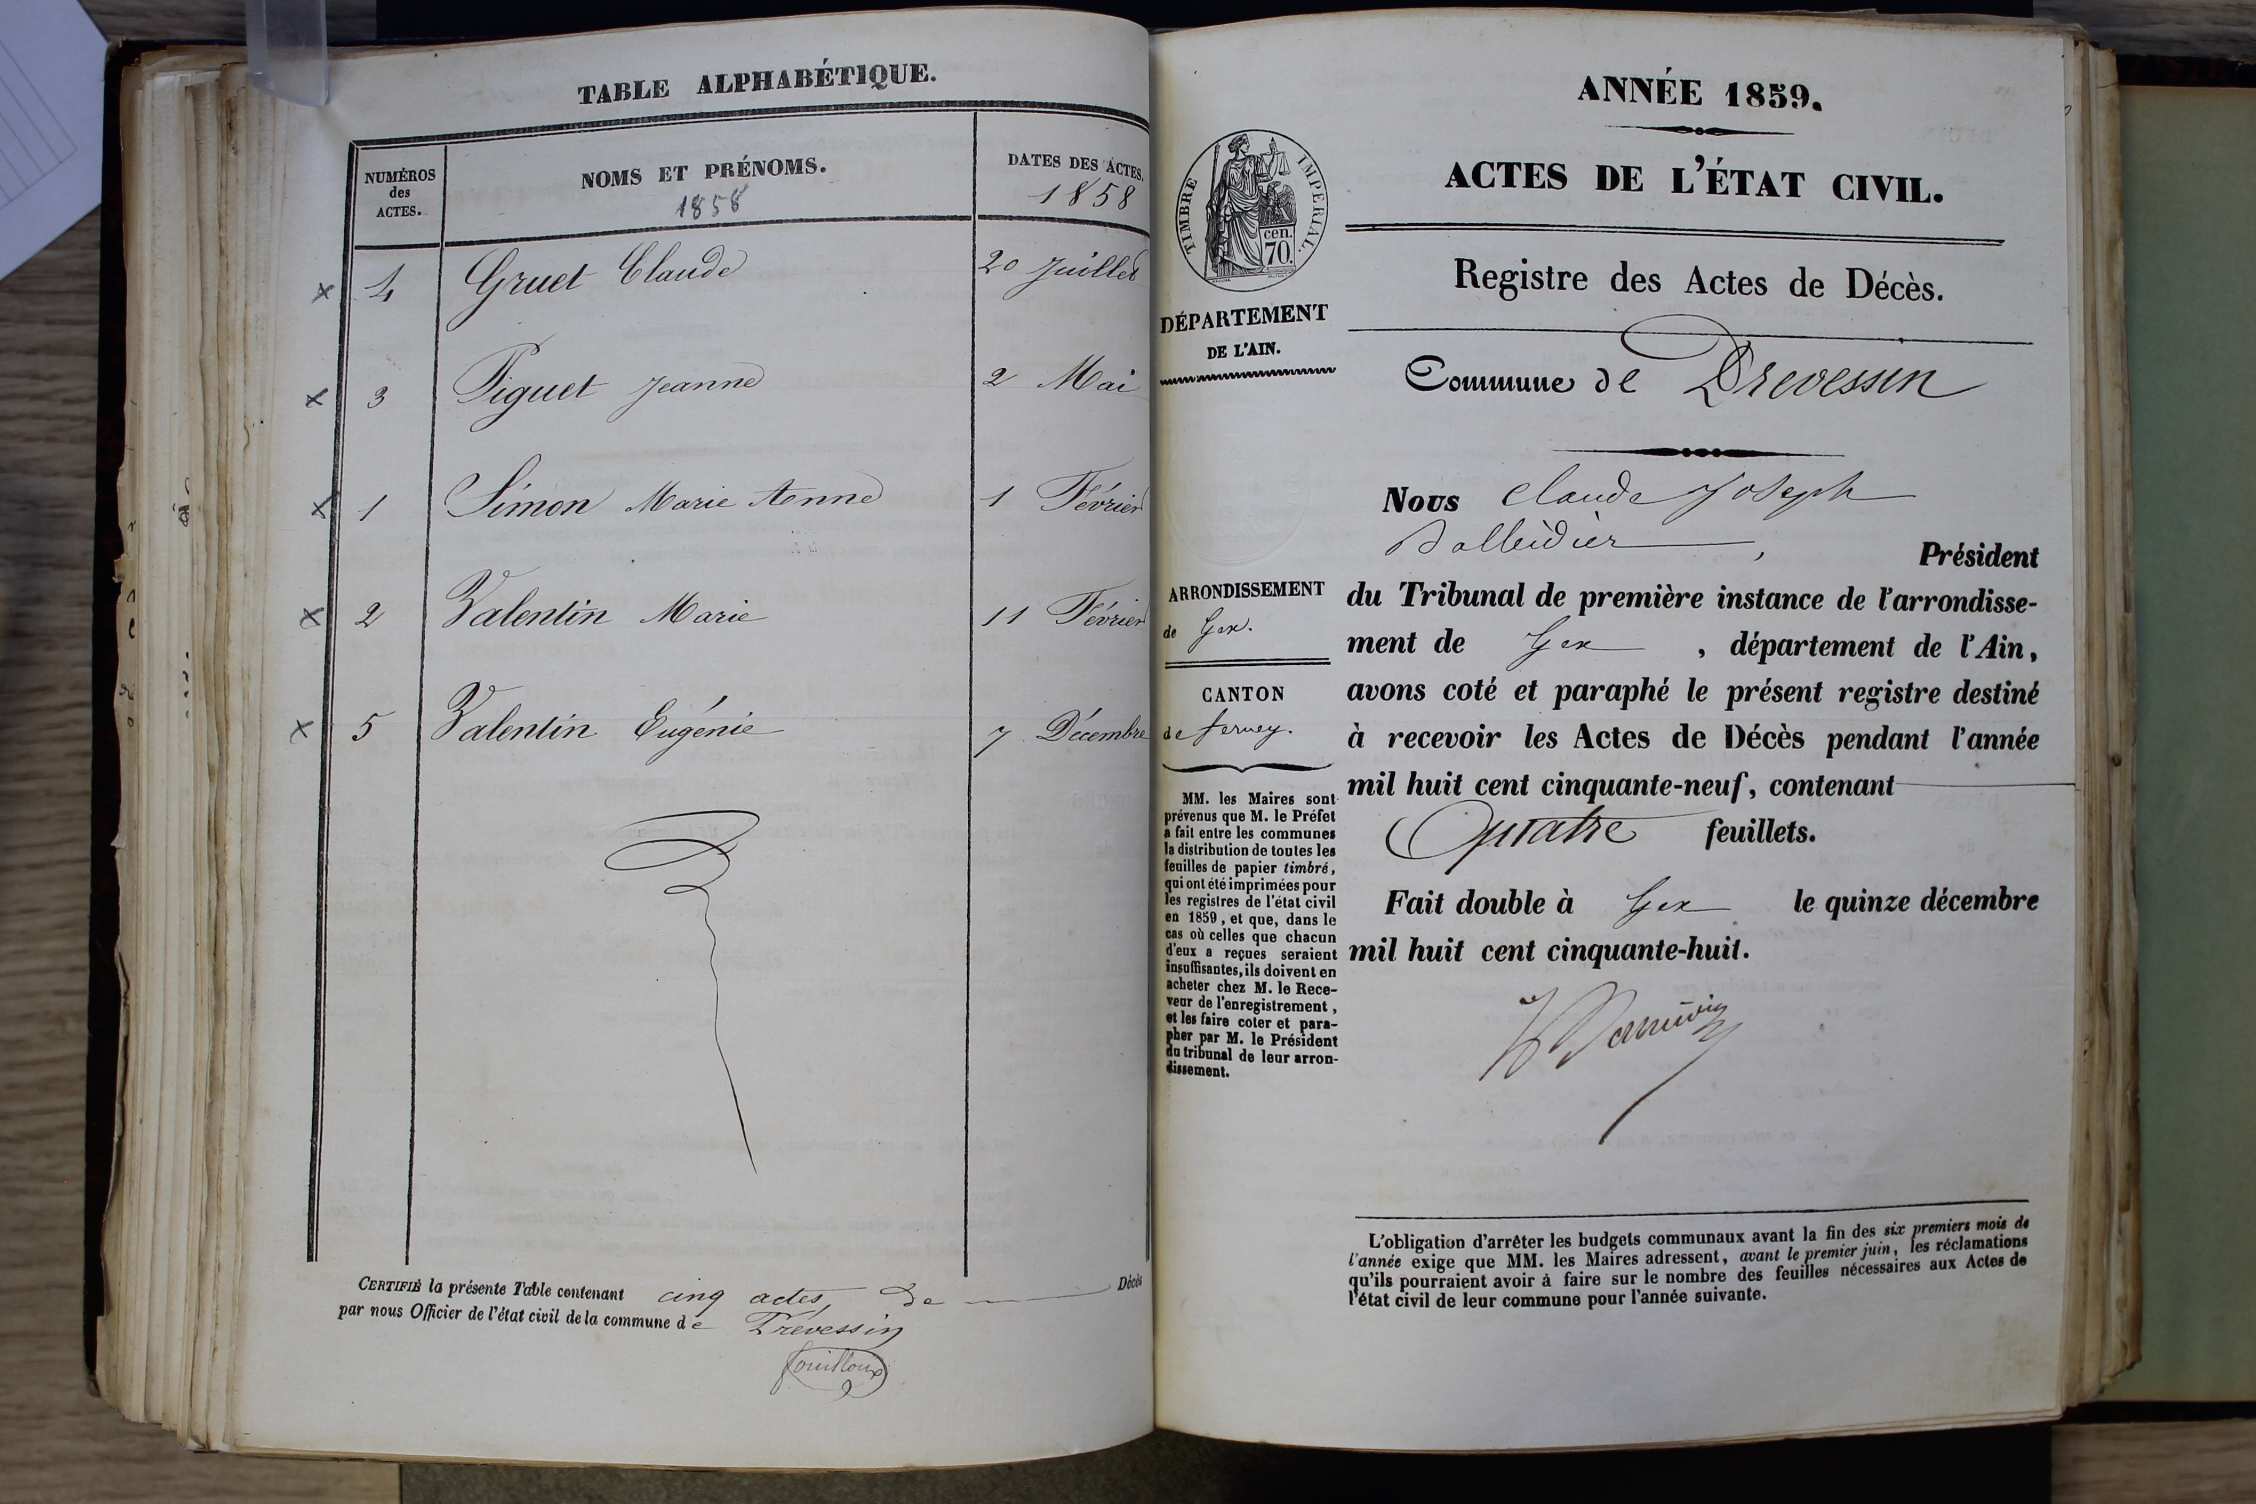 TABLE ALPHABÉTIQUE.
NUMÉROS
des
ACTES.
NOMS ET PRÉNOMS.
1858
DATES DES ACTES.
1858
4 Gruet Claude 20 Juillet
3 Piguet Jeanne 2 Mai
1 Simon Marie Anne 1 Février
2 Valentin Marie 11 Février
5 Valentin Eugénie 7 Décembre
CERTIFIÉ la présente Table contenant cinq actes de Décès
par nous Officier de l'état civil de la commune de Prévessin
fouilloux
ANNÉE 1859.
TIMBRE IMPÉRIAL.
cen.
70.
ACTES DE L'ÉTAT CIVIL.
Registre des Actes de Décès.
DÉPARTEMENT
DE L'AIN.
Commune de Prevessin
Nous Claude Joseph
, Président
du Tribunal de première instance de l'arrondisse-
ment de Gex , département de l'Ain,
avons coté et paraphé le présent registre destiné
à recevoir les Actes de Décès pendant l'année
mil huit cent cinquante-neuf, contenant
Quatre feuillets.
Fait double à Gex le quinze décembre
mil huit cent cinquante-huit.
ARRONDISSEMENT
de Gex.
CANTON
de ferney.
MM. les Maires sont
prévenus que M. le Préfet
a fait entre les communes
la distribution de toutes les
feuilles de papier timbré,
qui ont été imprimées pour
les registres de l'état civil
en 1859, et que, dans le
cas où celles que chacun
d'eux a reçues seraient
insuffisantes, ils doivent en
acheter chez M. le Rece-
veur de l'enregistrement,
et les faire coter et para-
pher par M. le Président
du tribunal de leur arron-
dissement.
L'obligation d'arrêter les budgets communaux avant la fin des six premiers mois de
l'année exige que MM. les Maires adressent, avant le premier juin, les réclamations
qu'ils pourraient avoir à faire sur le nombre des feuilles nécessaires aux Actes de
l'état civil de leur commune pour l'année suivante.